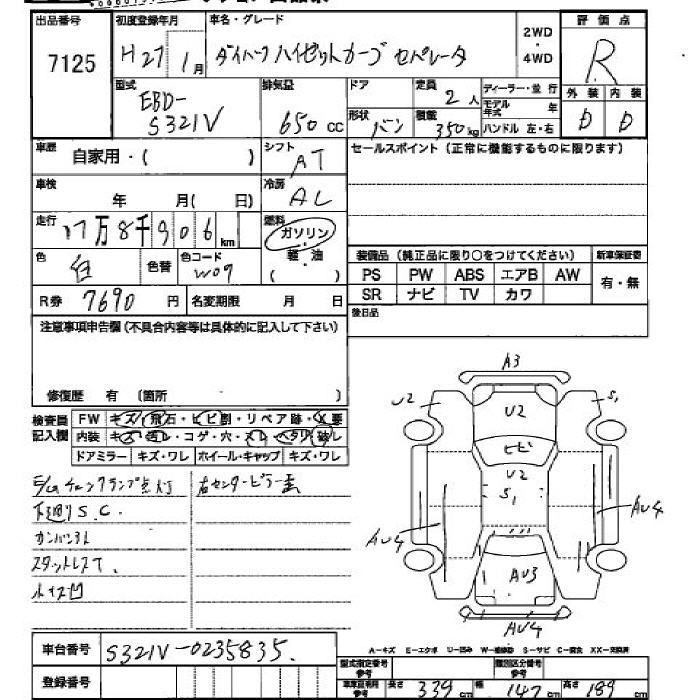 出品番号 初度登録年月 車名・グレード 2WD・4WD 評価点
7125 H27 1月 ダイハツハイゼットカーゴ セパレータ R
型式 排気量 ドア 定員 2人 ディーラー・並行 外装 内装
EBD-S321V 650cc 形状 バン 積載 350kg モデル年式 年 ハンドル 左・右 D D
車歴 自家用・( ) シフト AT セールスポイント(正常に機能するものに限ります)
車検 年 月( 日) 冷房 AC
走行 17万8千906km 燃料 ガソリン・軽・油( )
色 白 色替 色コード W09 装備品(純正品に限り○をつけてください) 新車保証書
PS PW ABS エアB AW 有・無
R券 7690円 名変期限 月 日 SR ナビ TV カワ
注意事項申告欄(不具合内容等は具体的に記入して下さい) 後日品
修復歴 有(箇所 )
検査員記入欄 FW キズ・飛石・ヒビ割・リペア跡・X悪
内装 キズ・汚レ・コゲ・穴・スレ・ヘタリ・破レ
ドアミラー キズ・ワレ ホイール・キャップ キズ・ワレ
E/Gチェックランプ点灯 右センターピラー歪
下廻りS.C.
カンバン跡
スタットレスT.
小キズ凹
A3
U2 U2 S1
ヒビ
U2
S1
AU4 AU4
AU3
AU4
車台番号 S321V-0235835
A-キズ E-エクボ U-凹み W-補修跡 S-サビ C-腐食 XX-交換済
登録番号 型式指定番号 類別区分番号
車庫証明用参考 長さ 339cm 幅 147cm 高さ 189cm